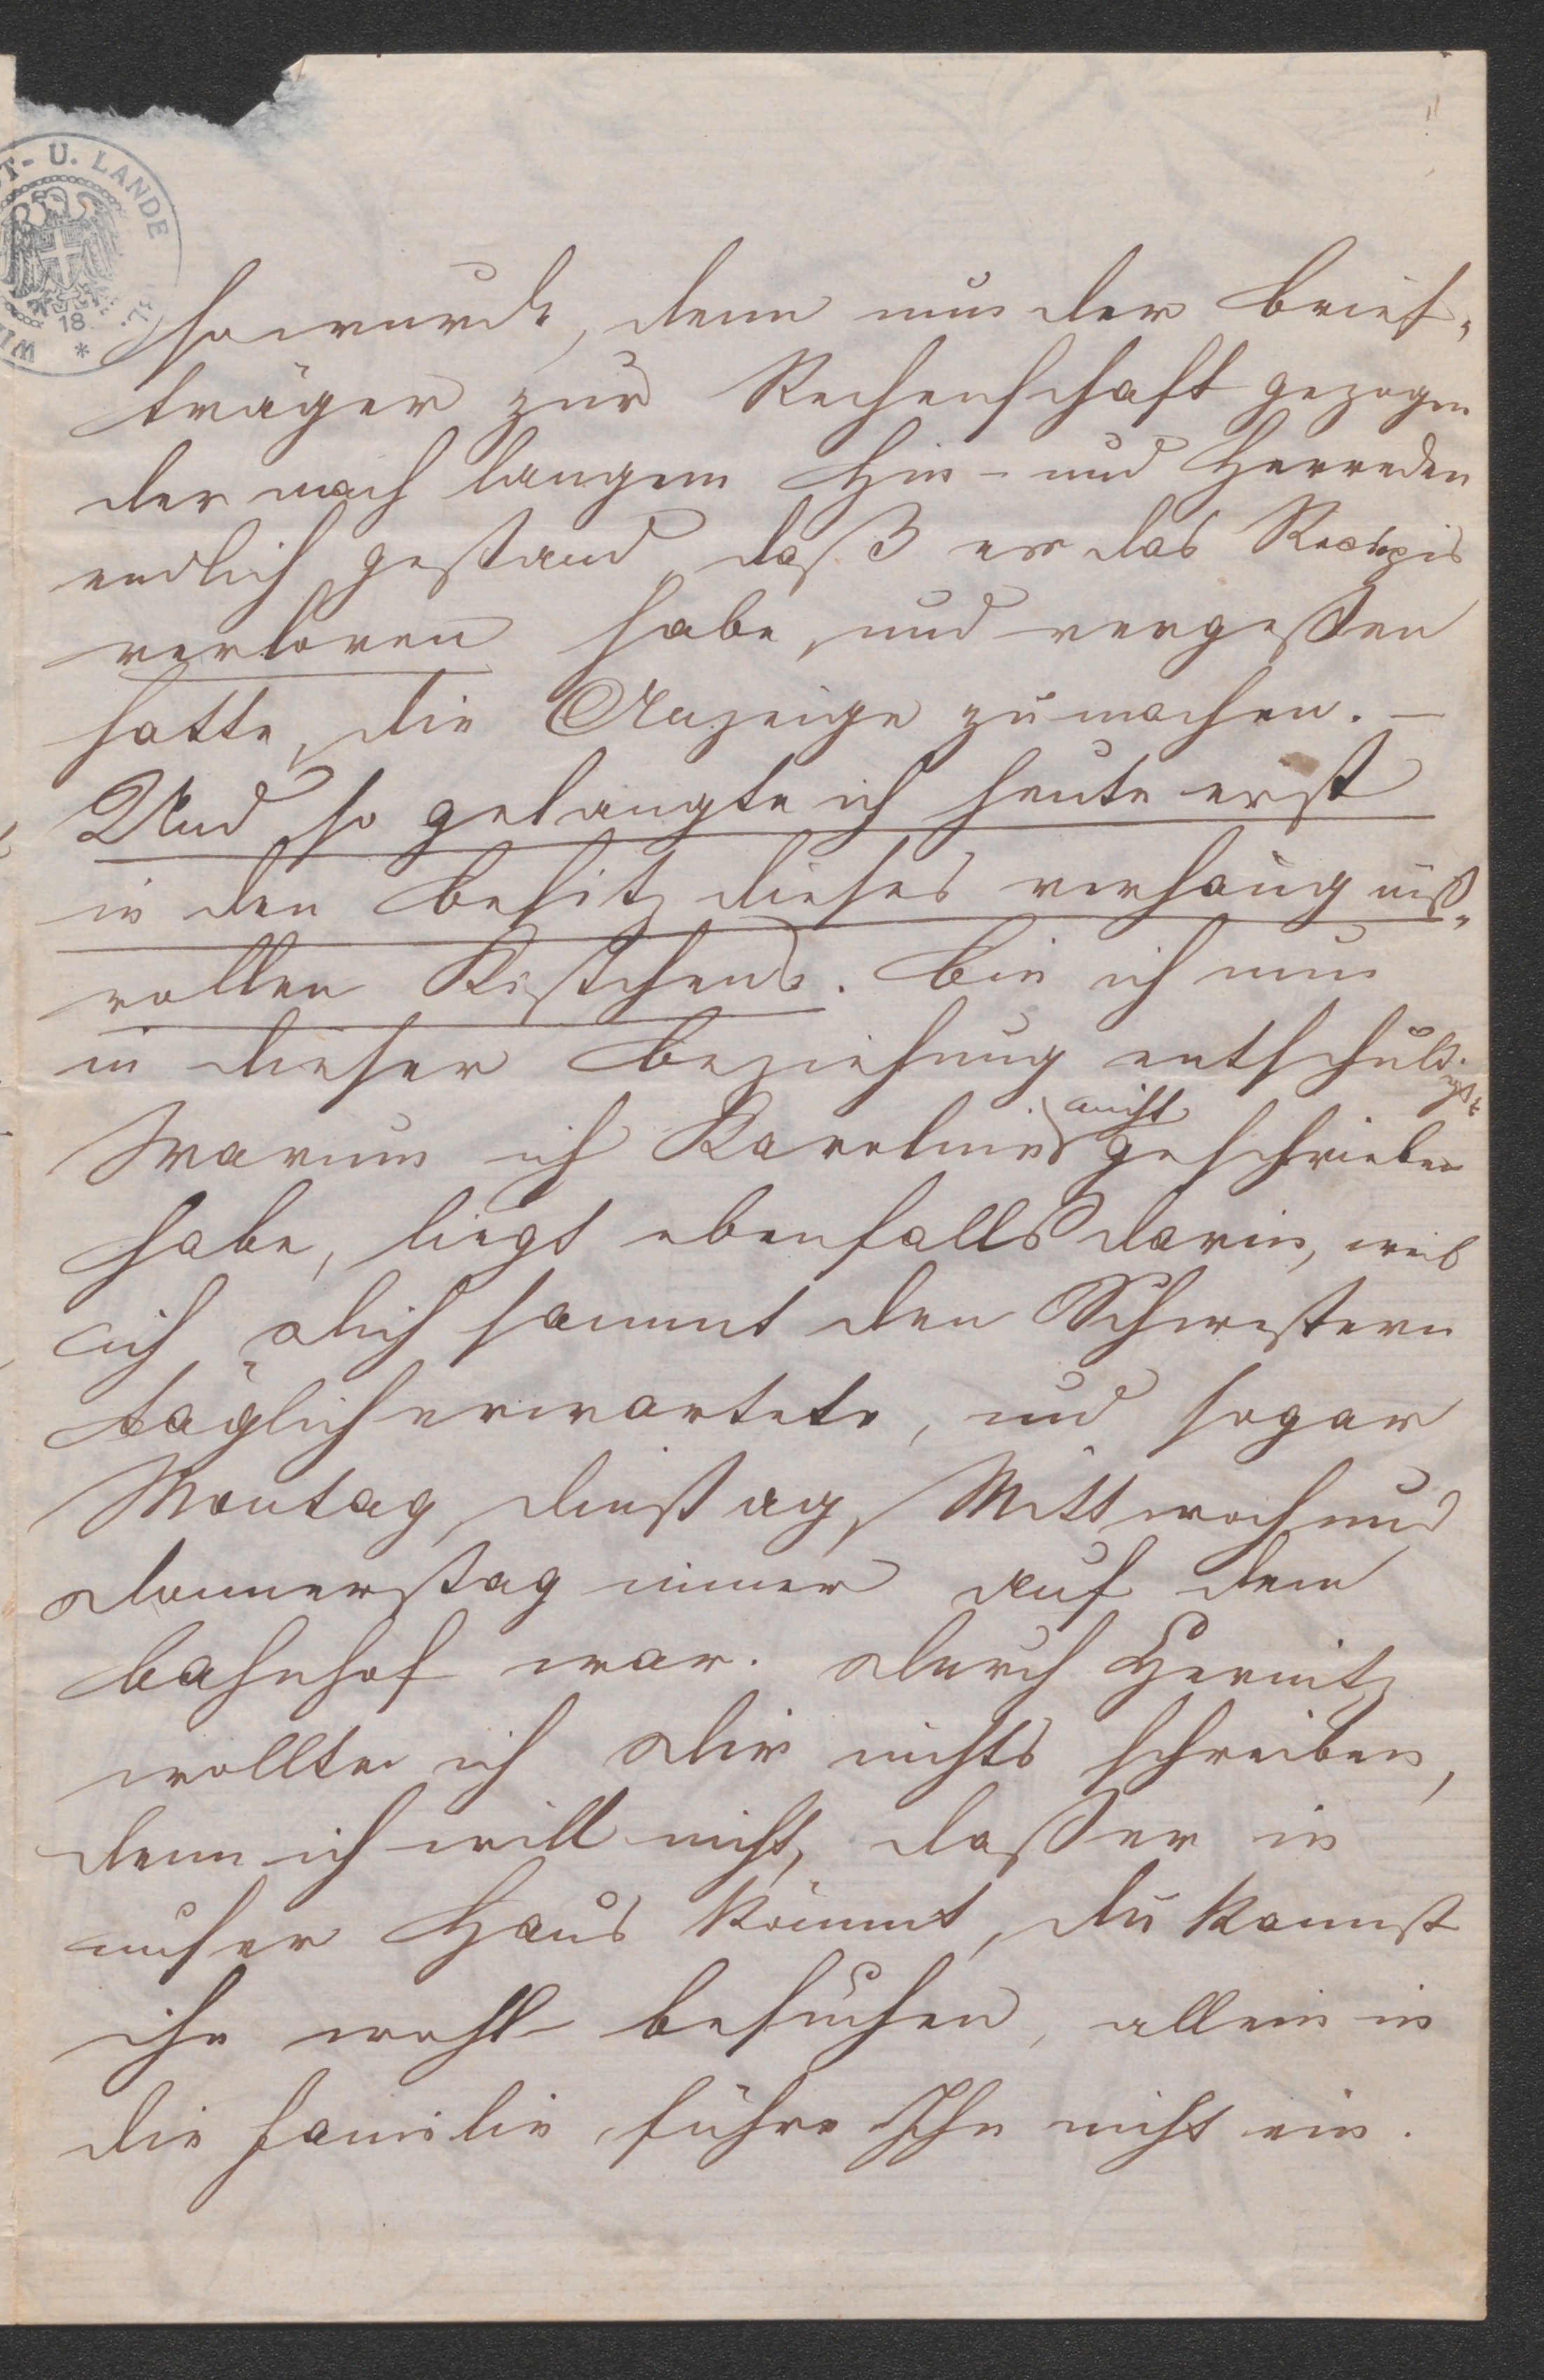 T- U. LANDE
18
WI
so wurde, denn nun der Brief-
träger zur Rechenschaft gezogen
der nach langem Hin- und Herreden
endlich gestand, daß er das Recepis
verloren habe, und vergessen
hatte, die Anzeige zu machen. –
Und so gelangte ich heute erst
in den Besitz dieses verhängniß-
vollen Kistchens. Bin ich nun
in dieser Beziehung entschuldigt.
Warum ich Karolinen nicht geschrieben
habe, liegt ebenfalls darin, weil
ich Dich sammt den Schwestern
täglich erwartete, und sogar
Montag, Dinstag, Mittwoch und
Donnerstag immer auf dem
Bahnhof war. Durch
wollte ich Dir nichts schreiben,
denn ich will nicht, daß er in
unser Haus kömmt, Du kannst
ihn wohl besuchen, allein in
die Familie führe Ihn nicht ein.